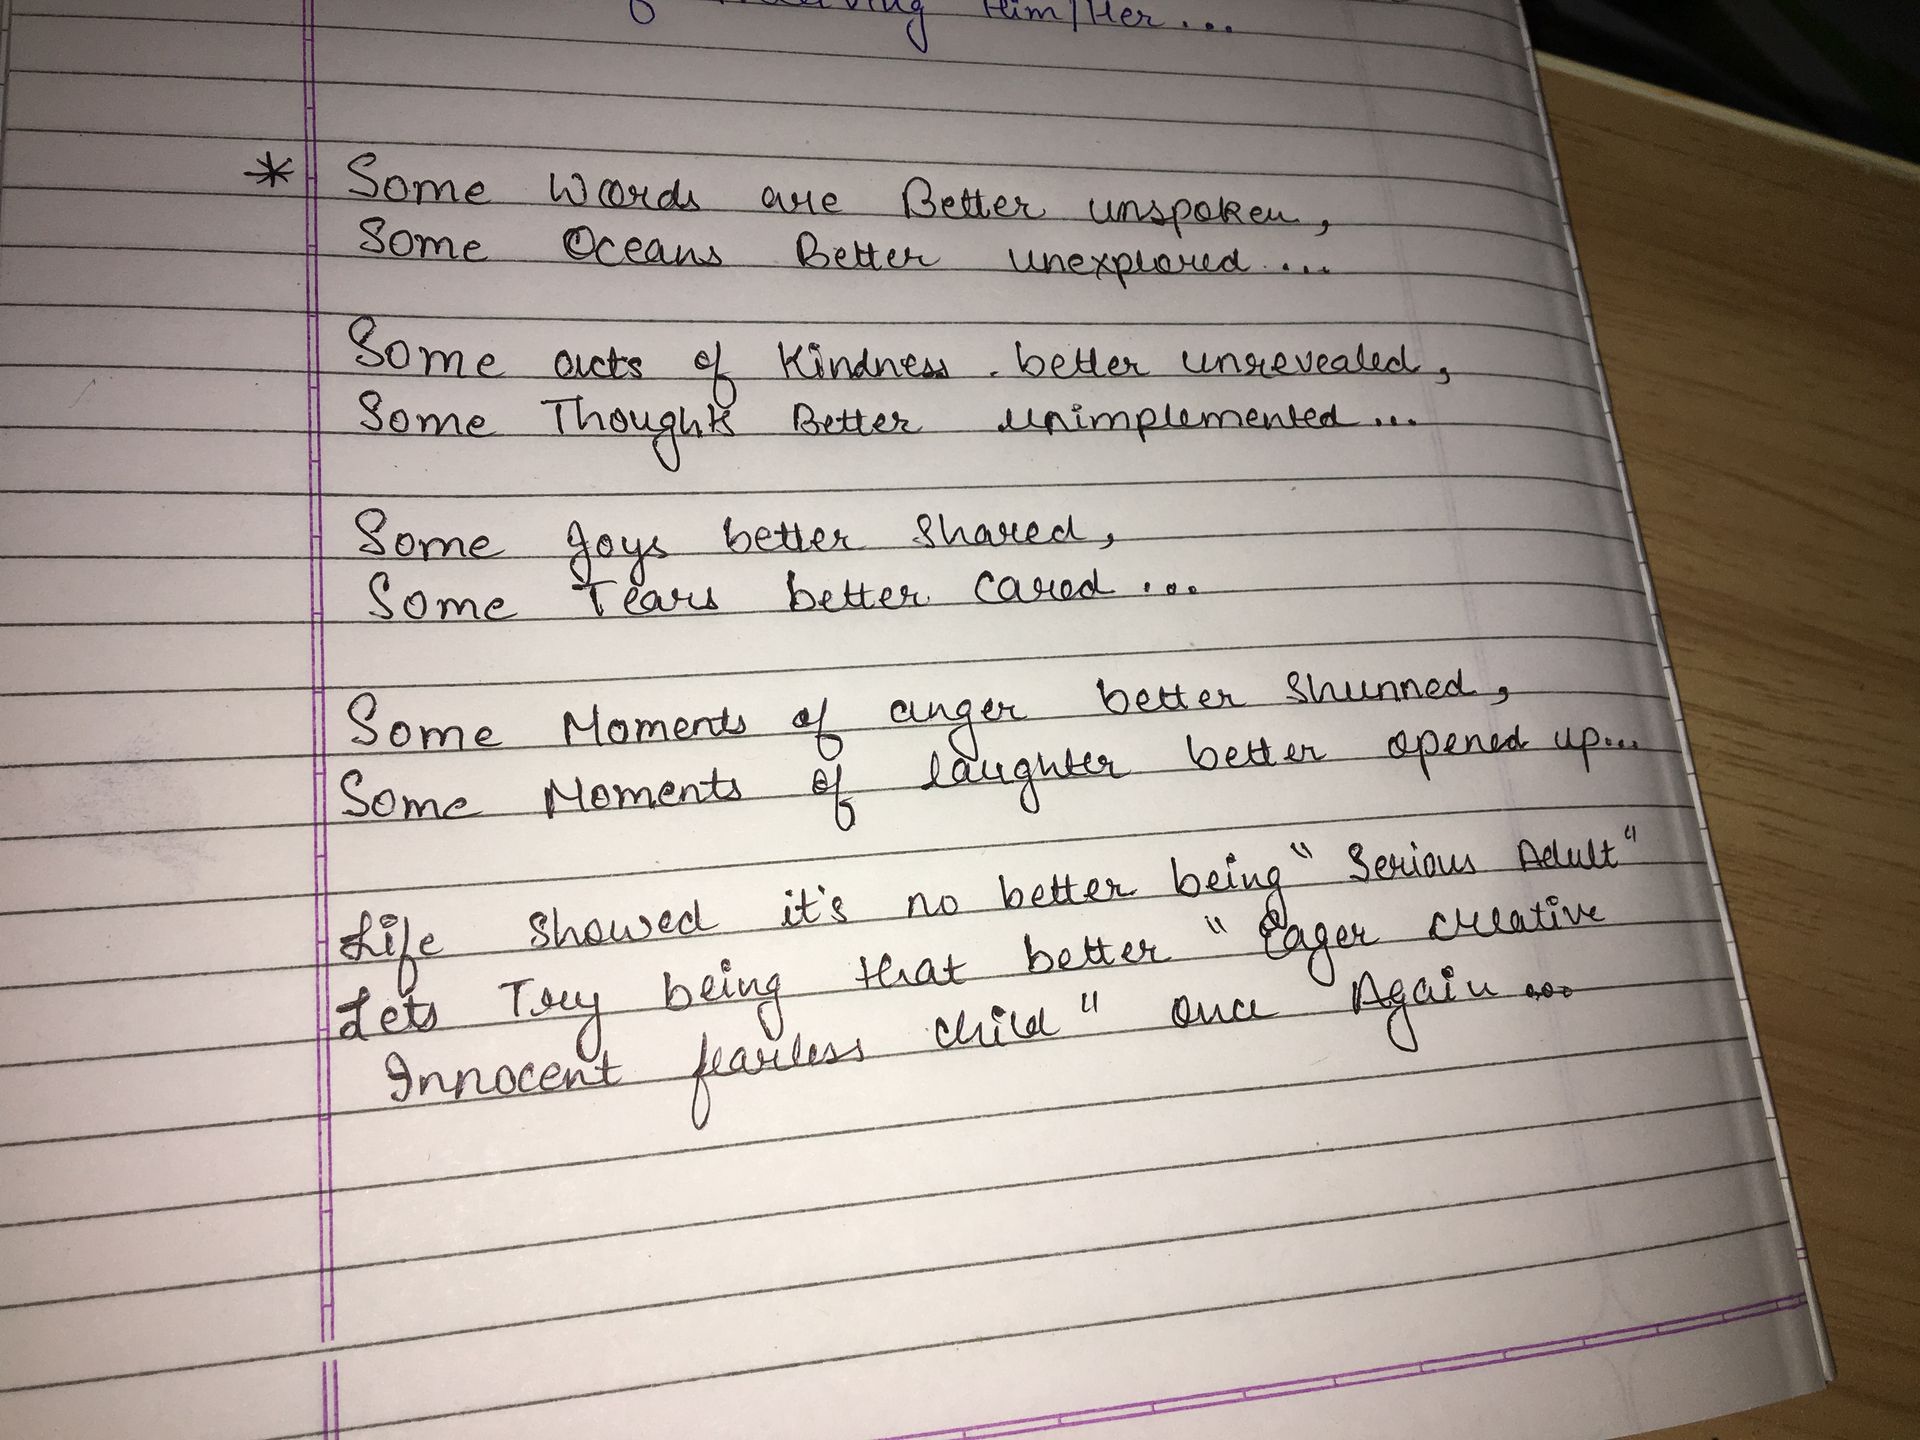 Him/Her...
* Some Words are Better unspoken,
Some Oceans Better unexplored...
Some acts of Kindness better unrevealed,
Some Thoughts Better unimplemented...
Some joys better shared,
Some Tears better cared...
Some Moments of anger better shunned,
Some Moments of laughter better opened up...
Life showed it's no better being "Serious Adult"
Lets Try being that better "Eager creative
Innocent fearless child" once Again...